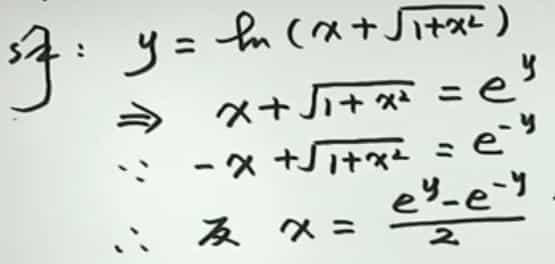 解: y = ln(x+√(1+x²))
⇒ x+√(1+x²) = e^y
∵ -x+√(1+x²) = e^{-y}
∴ 及 x = (e^y-e^{-y})/2